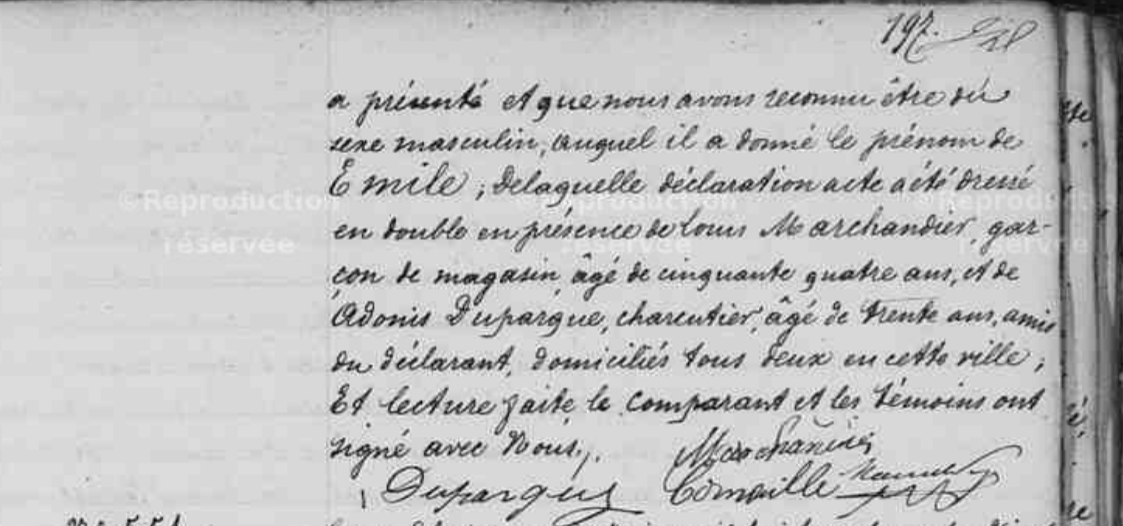 197.
a présenté et que nous avons reconnu être du
sexe masculin, auquel il a donné le prénom de
Emile ; Delaquelle déclaration acte a été dressé
©Reproduction réservée
en double en présence de Louis Marchandier, gar-
çon de magasin, âgé de cinquante quatre ans, et de
Adonis Duparque, charcutier, âgé de trente ans, amis
du déclarant, domiciliés tous deux en cette ville ;
Et lecture faite, le comparant et les témoins ont
signé avec Nous.
Marchandier
Duparque Corneille